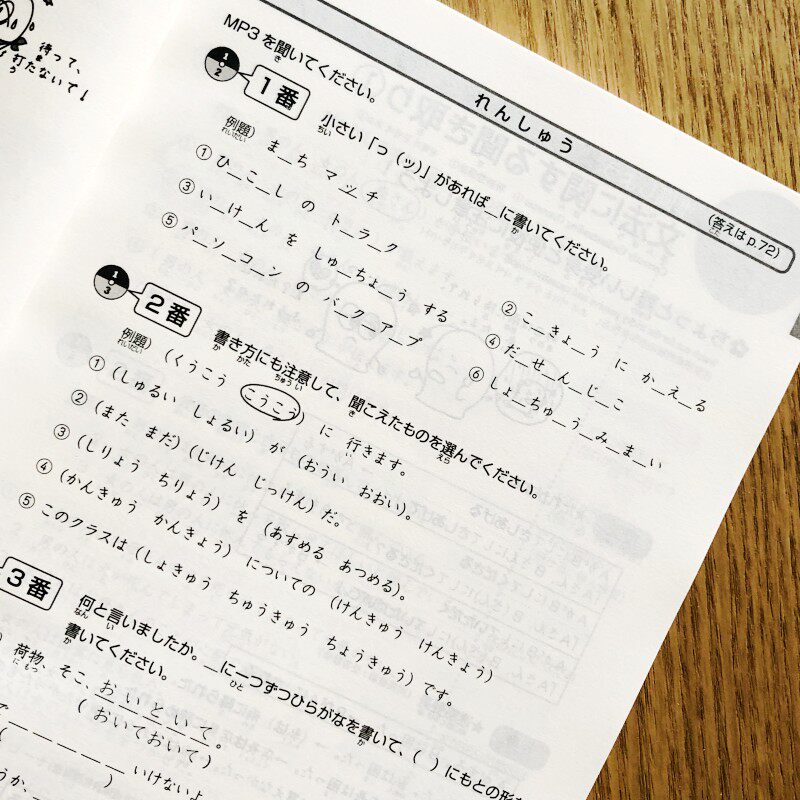 待って、
打たないで!
MP3を聞いてください。
れんしゅう
(答えはp.72)
1番 小さい「っ(ッ)」があれば_に書いてください。
例題) ま_ち マッチ
① ひ_こ_し の ト_ラ_ク
② こ_きょ_う に か_え_る
③ い_け_ん を しゅ_ちょ_う する
④ だ_せ_ん_じ_こ
⑤ パ_ソ_コ_ン の バ_ク_ア_プ
⑥ しょ_ちゅ_う_み_ま_い
2番 書き方にも注意して、聞こえたものを選んでください。
例題) (くうこう こうこう) に 行きます。
① (しゅるい しょるい) が (おうい おおい)。
② (また まだ) (じけん じっけん) だ。
③ (しりょう ちりょう) を (あすめる あつめる)。
④ (かんきゅう かんきょう) についての (けんきゅう けんきょう)
⑤ このクラスは (しょきゅう ちゅうきゅう ちょうきゅう) です。
3番 何と言いましたか。_に一つずつひらがなを書いて、( )にもとの形
書いてください。
荷物、そこ、おいといて。
(おいておいて)
いけないよ